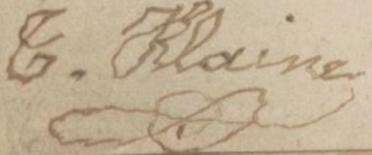 E. Klaine